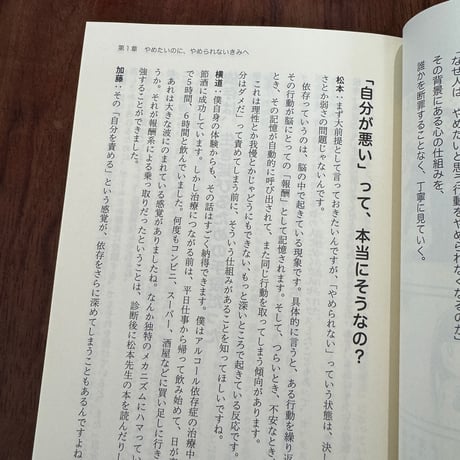 「なぜ、やめたいと思う行動をやめられなくなるのか」
その背景にある心の仕組みを、
誰かを断罪することなく、丁寧に見ていく。
第1章 やめたいのに、やめられないきみへ
「自分が悪い」って、本当にそうなの？
松本：まず大前提として言っておきたいんですが、「やめられない」っていう状態は、決し
さとか弱さの問題じゃないんです。
依存っていうのは、脳の中で起きている現象です。具体的に言うと、ある行動を繰り返
その行動が脳にとっての「報酬」として記憶されます。そして、つらいとき、不安なとき、
き、その記憶が自動的に呼び出されて、また同じ行動を取ってしまう傾向があります。
これは理性とか我慢とかじゃどうにもできない、もっと深いところで起きている反応です。
分はダメだ」って責めてしまう前に、そういう仕組みがあることを知ってほしいですね。
横道：僕自身の体験からも、その話はすごく納得できます。僕はアルコール依存症の治療中
節酒に成功しています。しかし治療につながる前は、平日仕事から帰って飲み始めて、日が
で5時間、6時間と飲んでいました。何度もコンビニ、スーパー、酒屋などに買い足しに行き
あれは大きな波にのまれている感覚がありましたね。なんか独特のメカニズムにハマってい
うか。それが報酬系による乗っ取りだったということは、診断後に松本先生の本を読んだり
強することができました。
加藤：その「自分を責める」という感覚が、依存をさらに深めてしまうこともあるんですよね